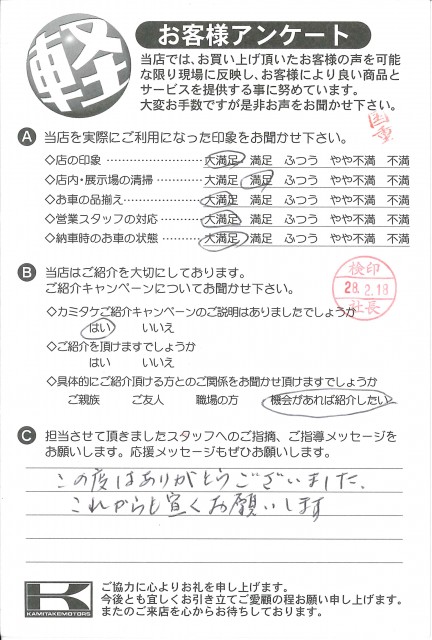 軽
お客様アンケート
当店では、お買い上げ頂いたお客様の声を可能
な限り現場に反映し、お客様により良い商品と
サービスを提供する事に努めています。
大変お手数ですが是非お声をお聞かせ下さい。
A 当店を実際にご利用になった印象をお聞かせ下さい。
◇店の印象 ……………………… 大満足 満足 ふつう やや不満 不満
◇店内・展示場の清掃 ………… 大満足 満足 ふつう やや不満 不満
◇お車の品揃え ………………… 大満足 満足 ふつう やや不満 不満
◇営業スタッフの対応 ………… 大満足 満足 ふつう やや不満 不満
◇納車時のお車の状態 ………… 大満足 満足 ふつう やや不満 不満
B 当店はご紹介を大切にしております。
ご紹介キャンペーンについてお聞かせ下さい。
検印
28.2.18
社長
◇カミタケご紹介キャンペーンのご説明はありましたでしょうか
はい いいえ
◇ご紹介を頂けますでしょうか
はい いいえ
◇具体的にご紹介頂ける方とのご関係をお聞かせ頂けますでしょうか
ご親族 ご友人 職場の方 機会があれば紹介したい
C 担当させて頂きましたスタッフへのご指摘、ご指導メッセージを
お願いします。応援メッセージもぜひお願いします。
この度はありがとうございました。
これからも宜くお願いします
K
KAMITAKEMOTORS
ご協力に心よりお礼を申し上げます。
今後とも宜しくお引き立てご愛顧の程お願い申し上げます。
またのご来店を心からお待ちしております。